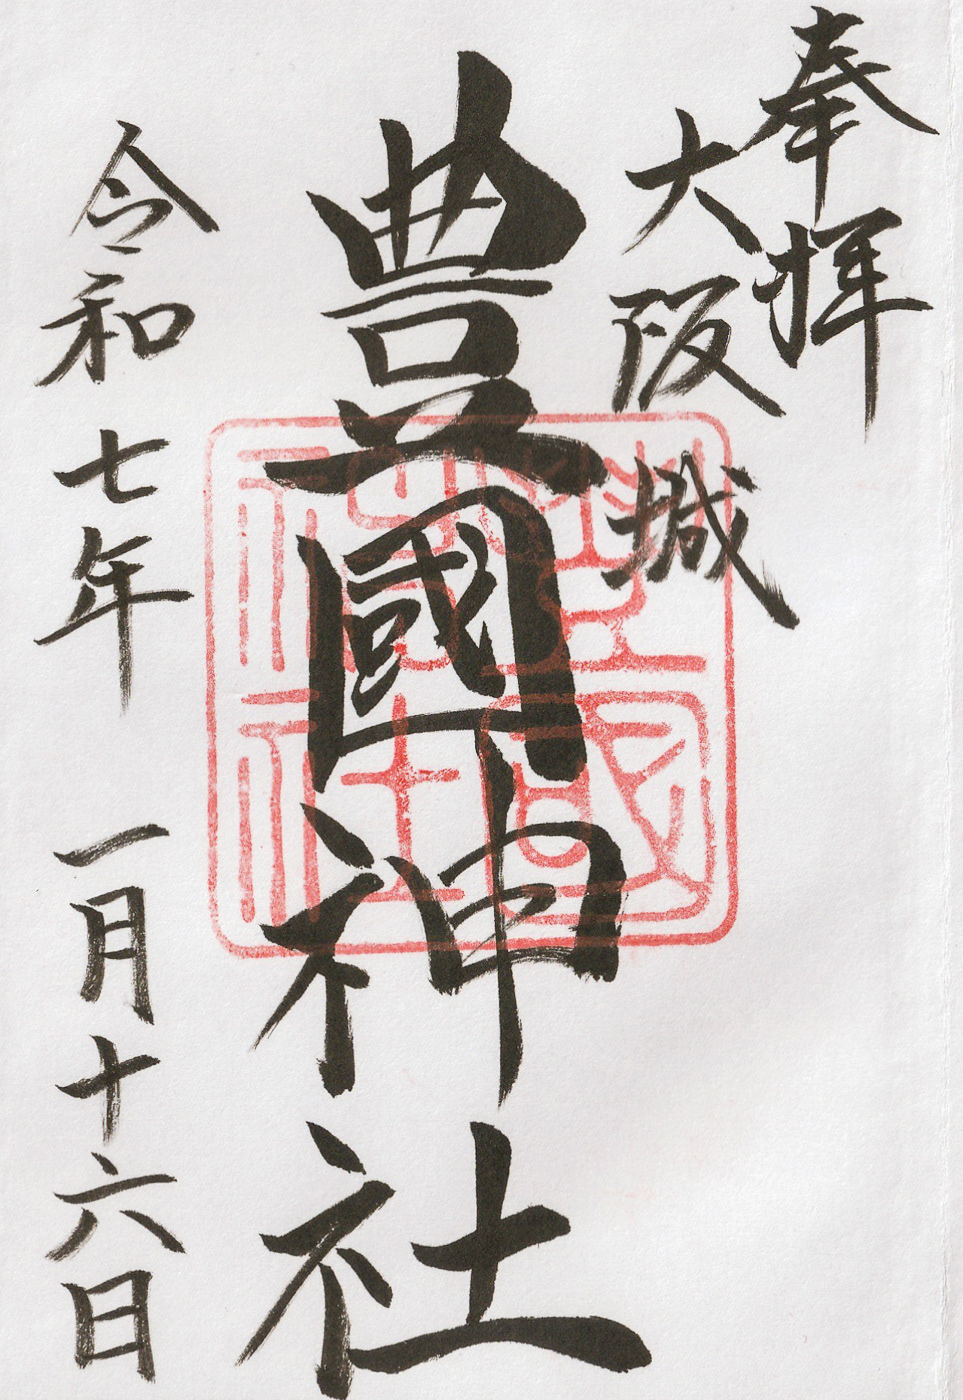 奉拝
大阪城
豊國神社
令和七年 一月十六日
豊國神社